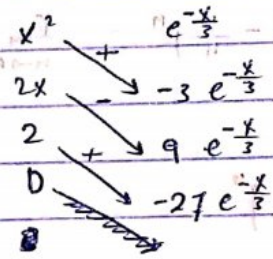 x² e^{-x/3}
+
2x - -3 e^{-x/3}
2 + 9 e^{-x/3}
0 -27 e^{-x/3}